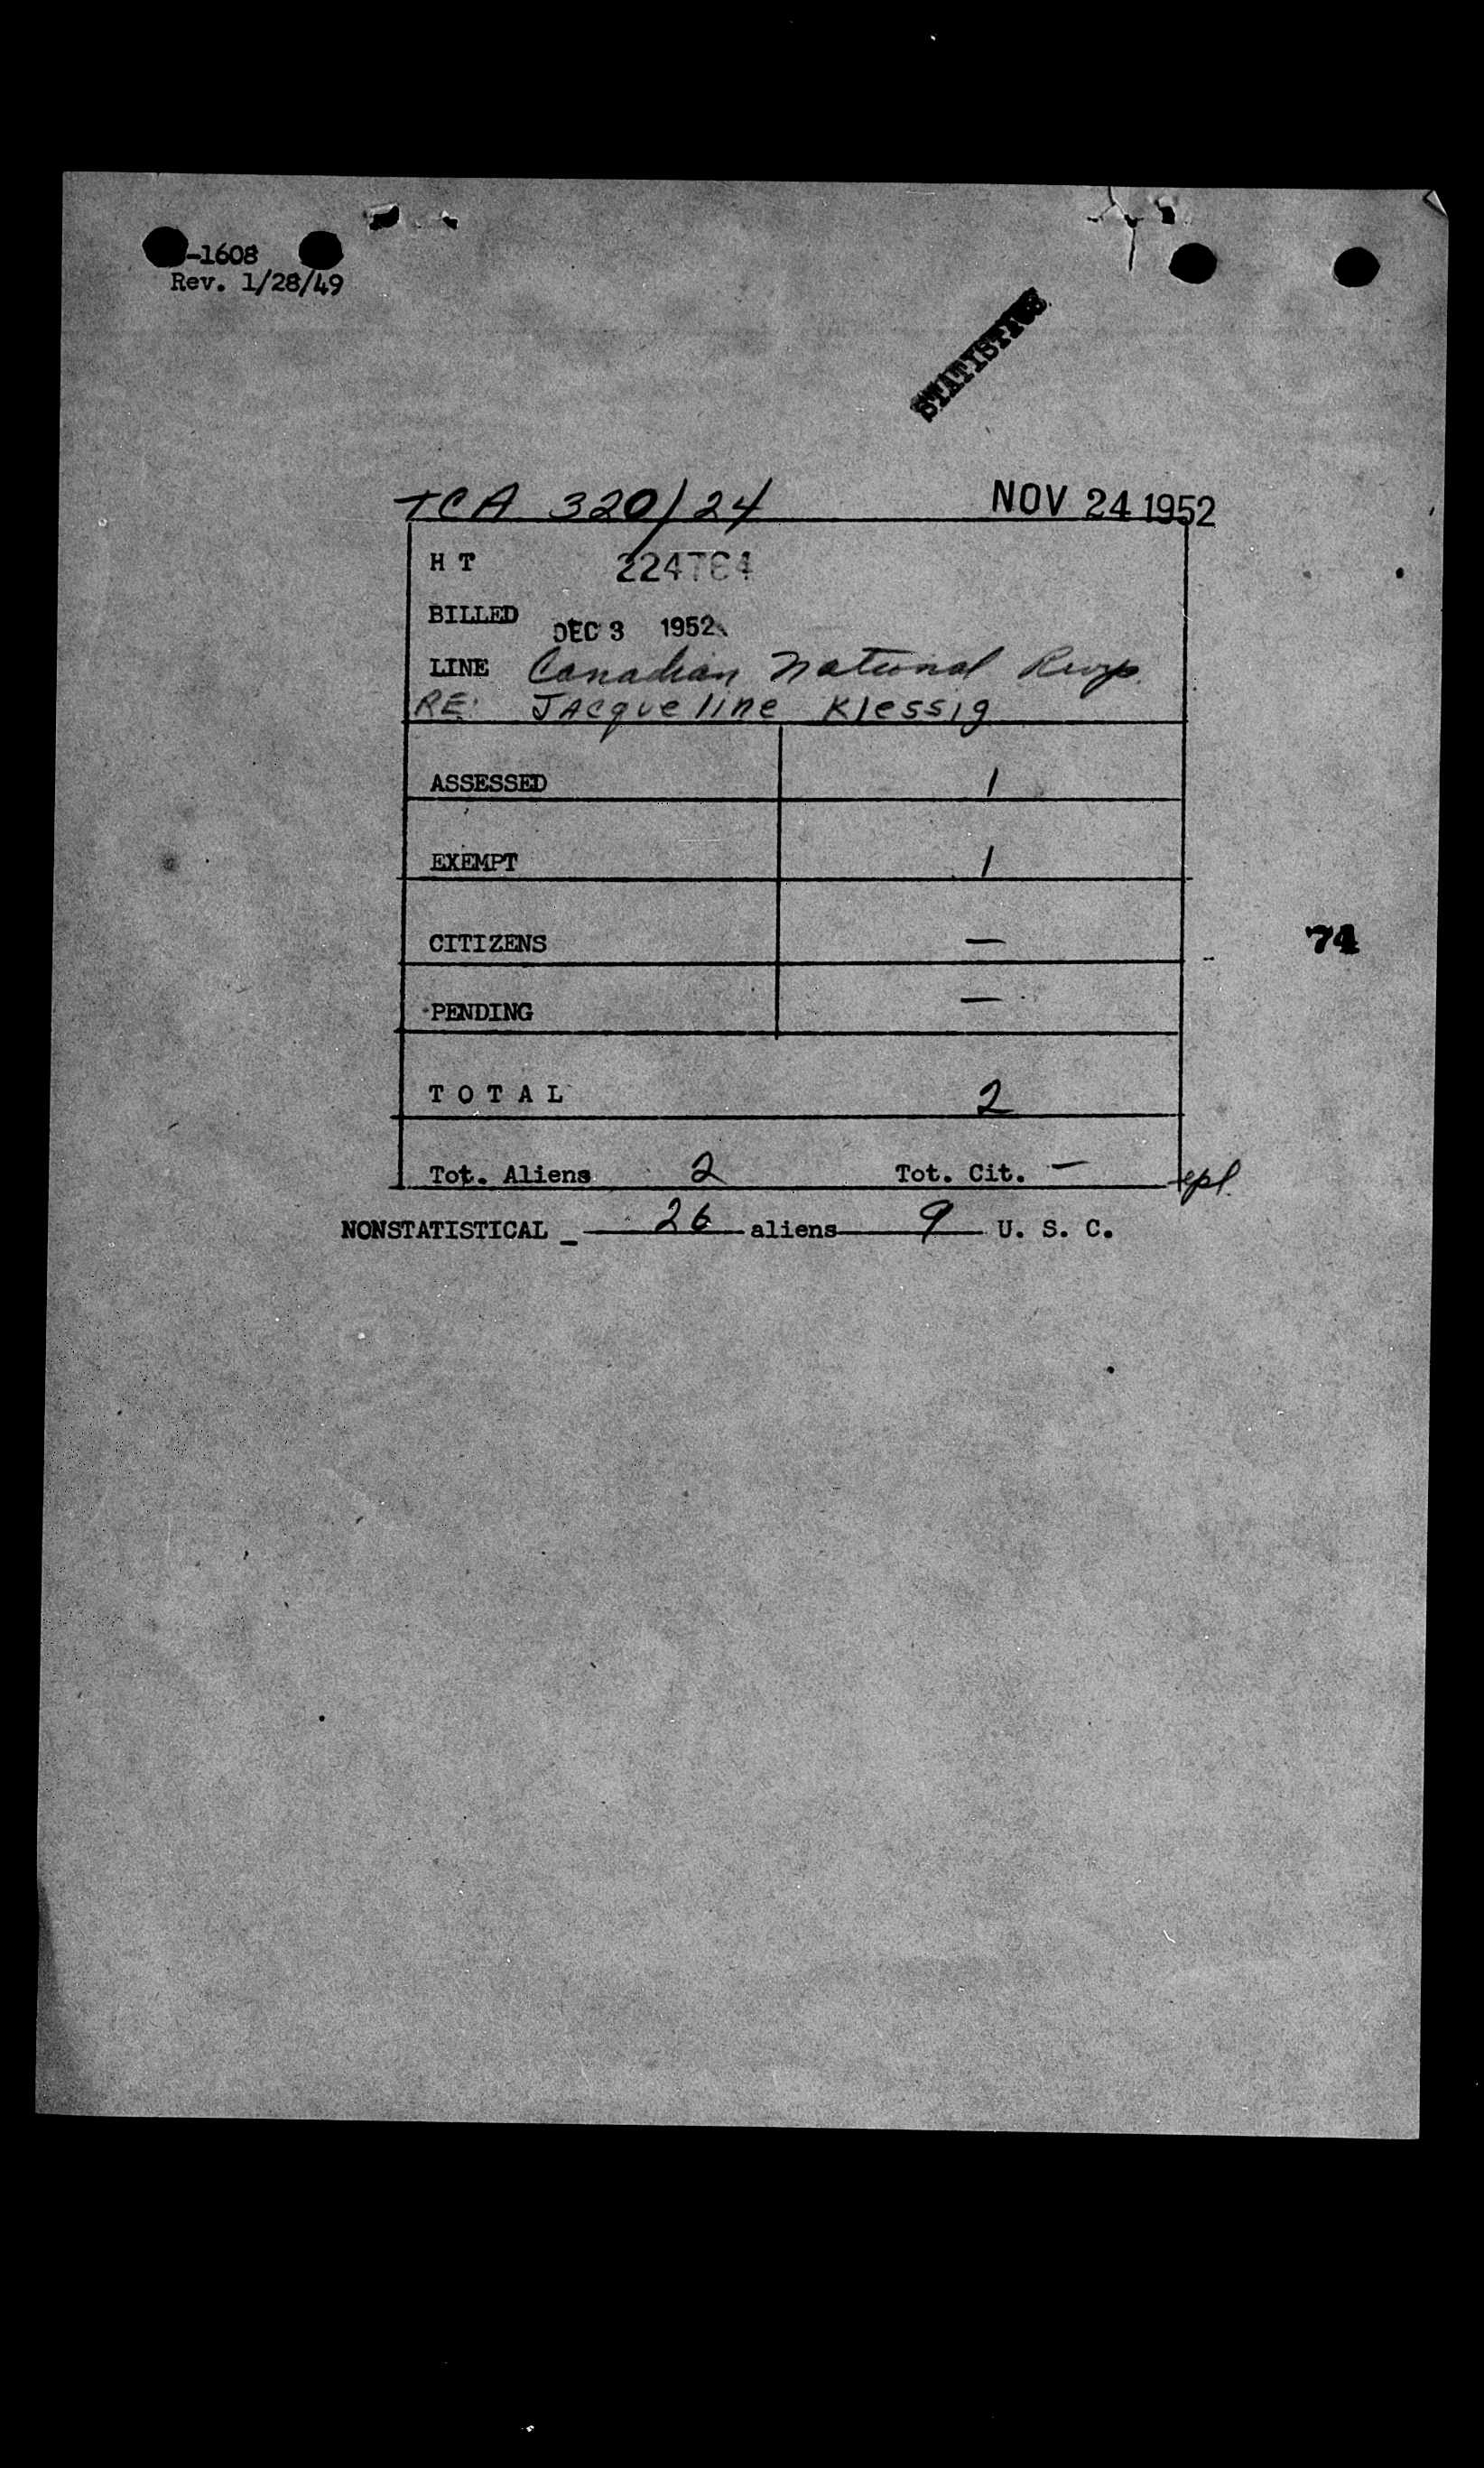 -1608
Rev. 1/28/49
STATISTICS
TCA 320/24 NOV 24 1952
H T 224784
BILLED DEC 3 1952
LINE Canadian National Rwys.
RE: Jacqueline Klessig
ASSESSED 1
EXEMPT 1
CITIZENS —
74
PENDING —
T O T A L 2
Tot. Aliens 2 Tot. Cit. — epl.
NONSTATISTICAL - 26 aliens 9 U. S. C.